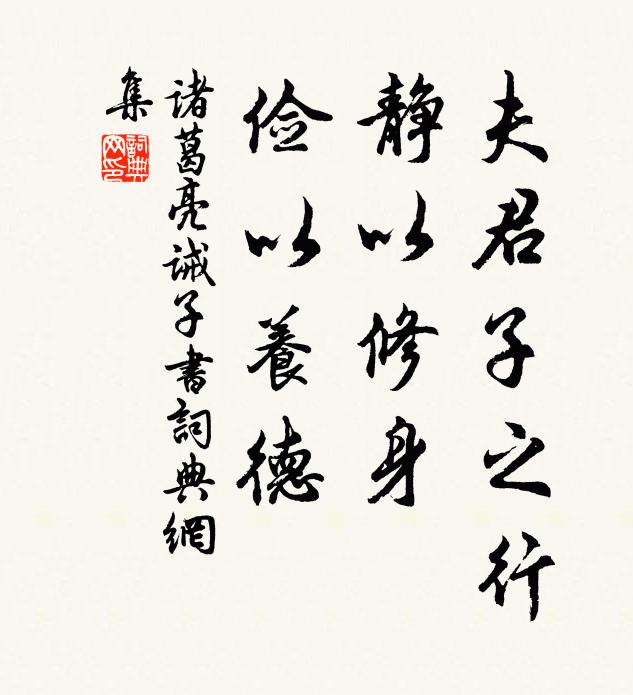 夫君子之行
静以修身
俭以養德
诸葛亮诫子書詞典網
集
詞典
网印